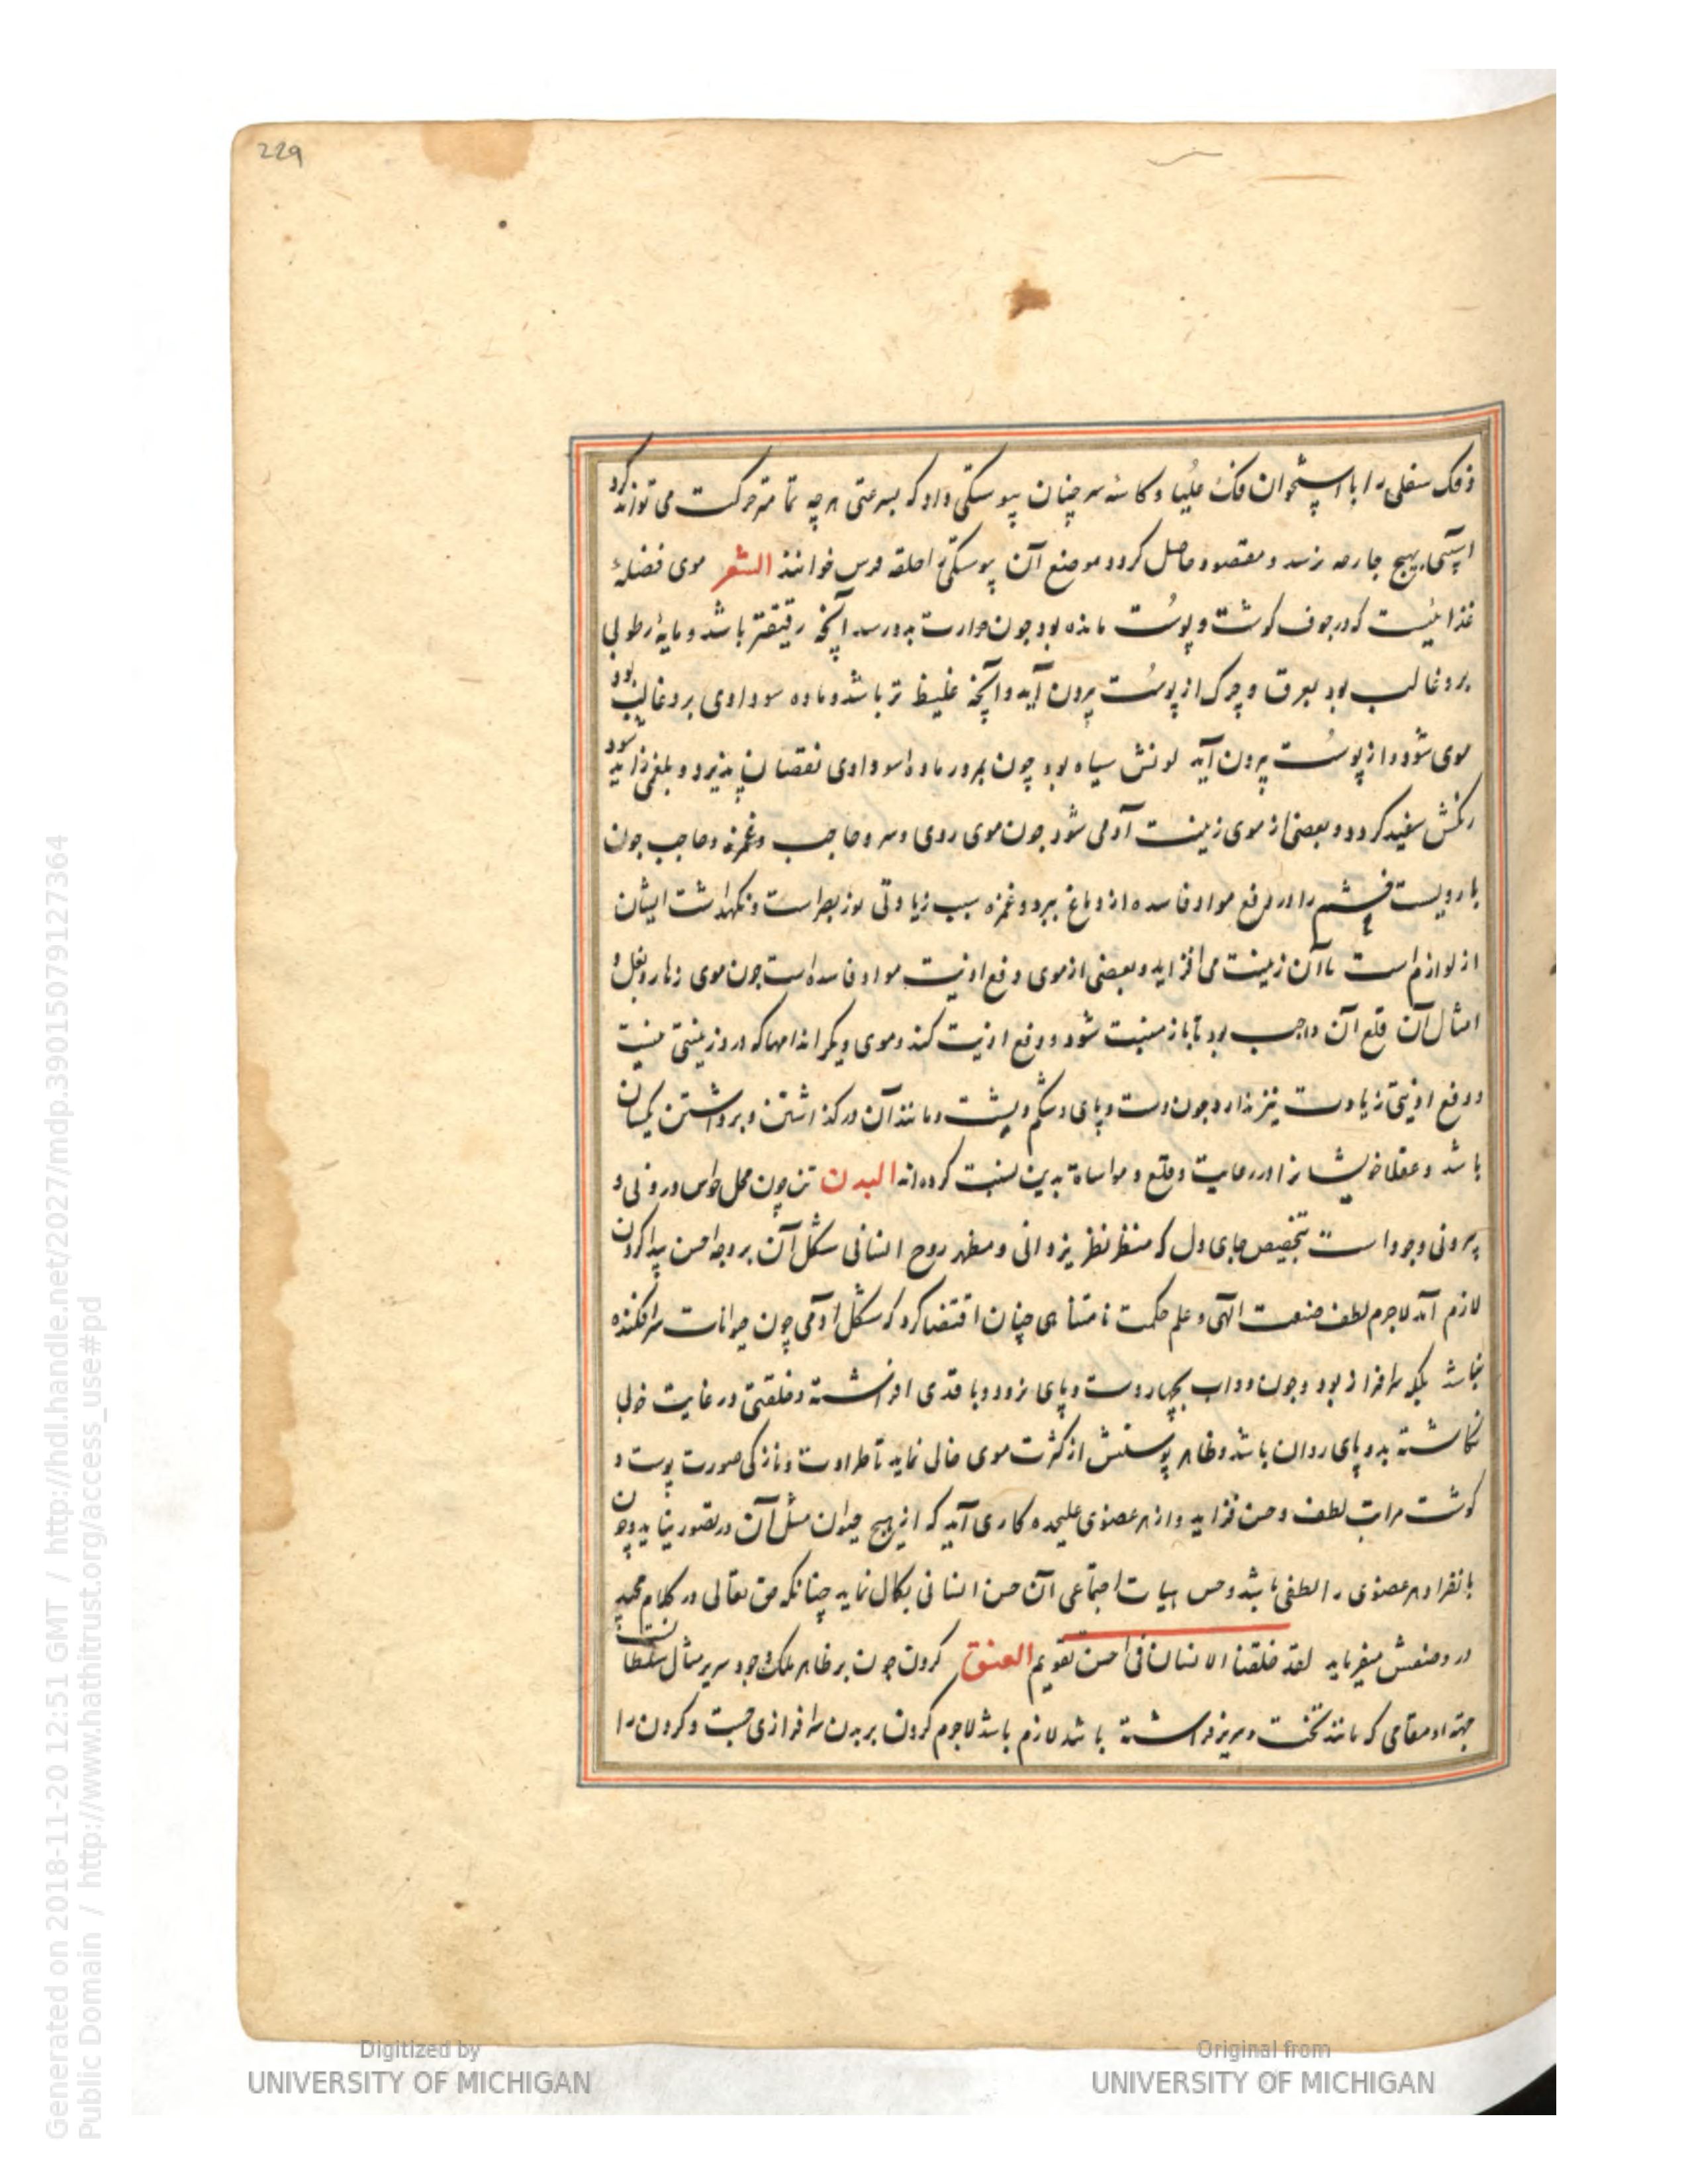 229
و فک سفلی را با استخوان فک عُلیا و کاسه سر چنان پیوستکی داد که بسرعتی هر چه تمامتر حرکت می تواند کرد
اسیبی بهیچ جارحه نرسد و مقصود حاصل کردد و موضع آن پیوستکی را حلقه درس خوانند الشعر موی فضلهٔ
غذائیست که در جوف کوشت و پوست مانده بود چون حرارت بدو رسد آنچه رقیقتر باشد و مایهٔ رطوبی
برو غالب بود بعرق و چرک از پوست بیرون آید و آنچه غلیظ تر باشد و ماده سوداوی برو غالب بود
موی شود و از پوست بیرون آید لونش سیاه بود چون بمرور ماده سوداوی نقصان پذیرد و بلغمی زاید شود
رنکش سفید کردد و بعضی از موی زینت آدمی شود چون موی روی و سر و حاجب و غمزه و حاجب چون
بارویست چشم را در دفع مواد فاسده از دماغ ببرد و غمزه سبب زیادتی نور بصر است و نکهداشت ایشان
از لوازم است تا آن زینت می افزاید و بعضی از موی دفع اذیت مواد فاسده است چون موی زهار و بغل و
امثال آن قلع آن واجب بود تا باز منبت شود و دفع اذیت کند و موی دیکر اندامها که درو زینتی نیست
و دفع اذیتی زیادت نیز ندارد چون دست و پای و شکم و پشت و مانند آن در کذاشتن و برداشتن یکسان
باشد و عقلا خویشانرا در رعایت و قلع و مواساة بدین نسبت کرده اند البدن تن چون محل حواس درونی و
بیرونی وجود است بتخصیص جای دل که منظر نظر یزدانی و مظهر روح انسانی شکل آن بر وجه احسن پیدا کردن
لازم آمد لاجرم لطف صنعت الهی و علم حکمت نامتناهی چنان اقتضا کرد که شکل آدمی چون حیوانات سرافکنده
نباشد بلکه سرافراز بود و چون دواب بچهار دست و پای نرود و با قدی افراشته و خلقتی در غایت خوبی
نکاشته بدو پای روان باشد و ظاهر پوستش از کثرت موی خالی نماید تا طراوت و نازکی صورت پوست و
کوشت مراتب لطف و حسن فزاید و از هر عضوی علیحده کاری آید که از هیچ حیوان مثل آن در تصور نیاید و چون
بانفراد هر عضوی را لطفی باشد و حسن هیات اجتماعی آن حسن انسانی بکمال نماید چنانکه حق تعالی در کلام مجید
در وصفش میفرماید لقد خلقنا الانسان فی احسن تقویم العنق کردن چون بر ظاهر ملک وجود سر بر مثال سلطان است
جهة او مقامی که مانند تخت و سریر افراشته باشد لازم باشد لاجرم کردن بر بدن سرافرازی جست و کردن را
Digitized by
UNIVERSITY OF MICHIGAN
Original from
UNIVERSITY OF MICHIGAN
Generated on 2018-11-20 12:51 GMT / http://hdl.handle.net/2027/mdp.39015079127364
Public Domain / http://www.hathitrust.org/access_use#pd